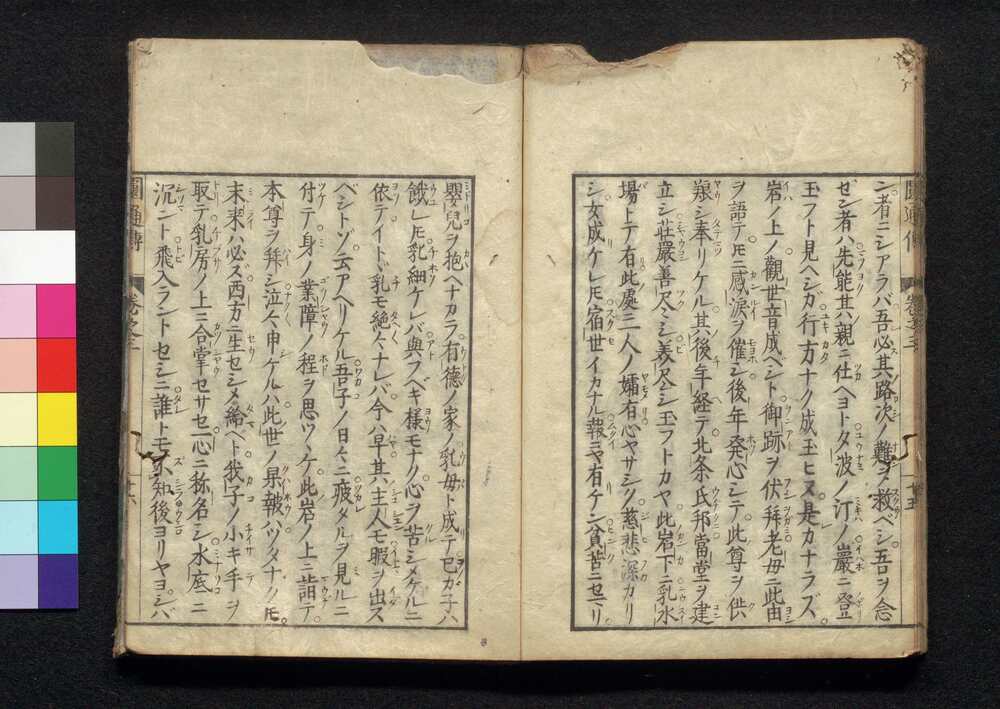 ン者ニシアラバ吾必其路次ノ難ヲ救ベシ。吾ヲ念
ゼン者ハ先能其ノ親ニ仕ヘヨト夕波ノ汀ノ巖ニ登
玉フト見ヘシガ行方ナク成玉ヒヌ是カナラズ
岩ノ上ノ觀世音成ベシト御跡ヲ伏拜老母ニ此由
ヲ語テ𪜈ニ感涙ヲ催シ後年発心シテ。此尊ヲ供
養シ奉リケル其ノ後年経テ北条氏邦當堂ヲ建
立シ荘厳善尽シ美尽シ玉フトカヤ此岩下ニ乳水
場トテ有此處ニ人ノ孀有心ヤサシク慈悲深カリ
シ女成ケレ𪜈宿世イカナル報ニヤ有ケン貧苦ニセマリ
嬰兒ヲ抱ヘナカラ有德ノ家ノ乳母ト成テ己カ子ハ
餓レ𪜈乳細ケレバ與フベキ様モナク心ヲ苦シメケルニ
依テイトヾ乳モ絶々ナレバ今ハ早其主人モ暇ヲ出ス
ベシトゾ云アヘリケル吾子ノ日々ニ疲タルヲ見ルニ
付テ身ノ業障ノ程ヲ思ツヾケ此岩ノ上ニ詣テ。
本尊ヲ拜シ泣々申ケルハ此世ノ果報ハツタナク𪜈。
末来ハ必ズ西方ニ生セシメ給ヘト我子ノ小キ手ヲ
取テ乳房ノ上ニ合掌セサセ一心ニ称名シ水底ニ
沉ント飛入ラントセシニ誰トモ不知後ヨリヤヨシバ
圓通傳
卷之三
廿六
圓通傳
卷之三
廿五